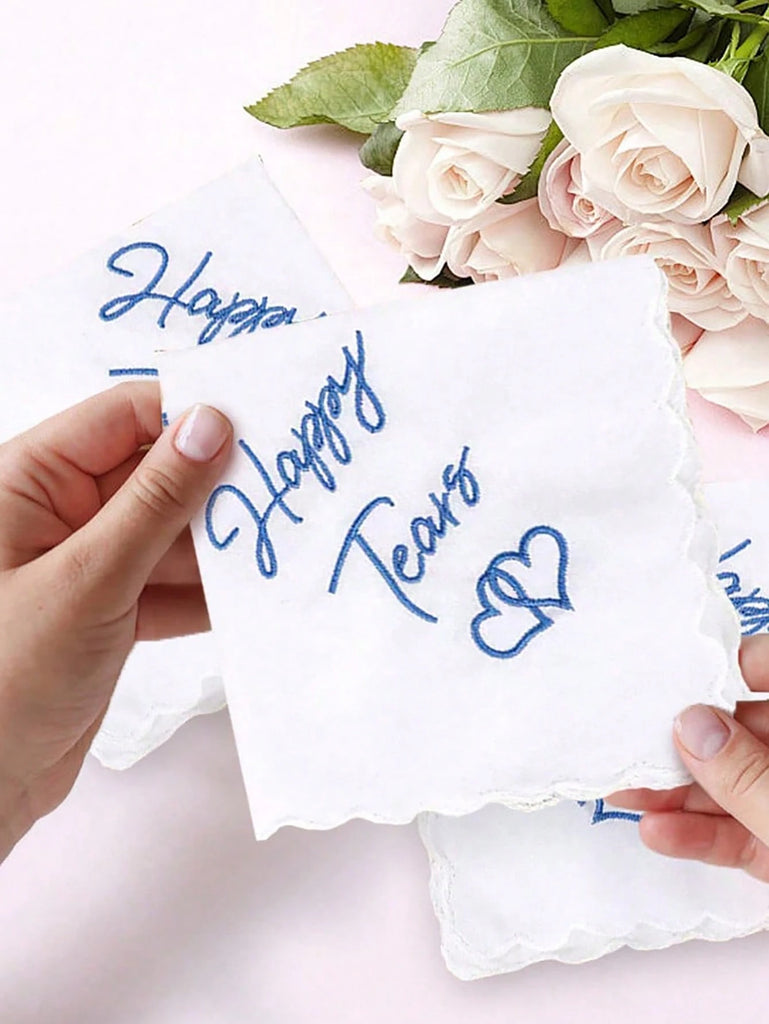 Happy
Happy
Tears